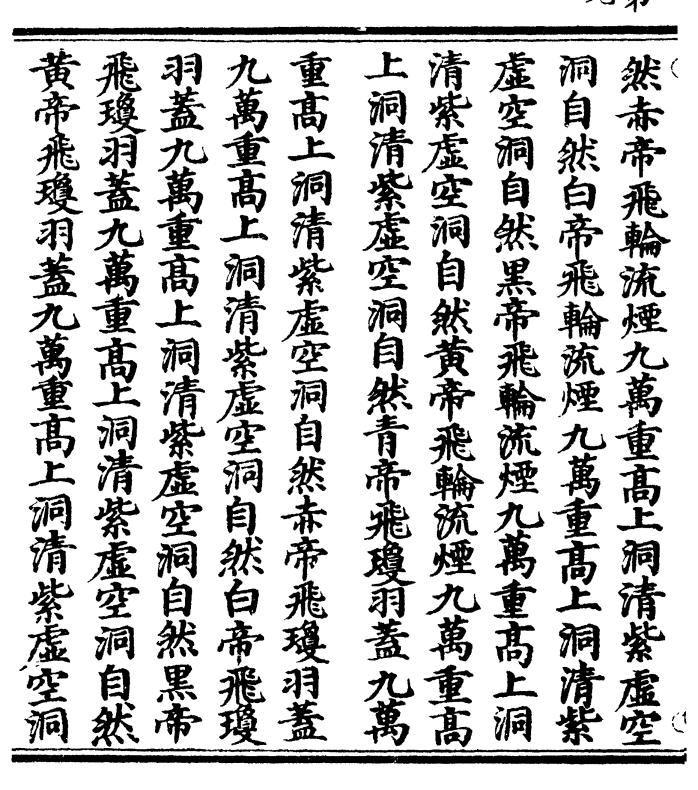 然赤帝飛輪流煙九萬重高上洞清紫虛空
洞自然白帝飛輪流煙九萬重高上洞清紫
虛空洞自然黑帝飛輪流煙九萬重高上洞
清紫虛空洞自然黃帝飛輪流煙九萬重高
上洞清紫虛空洞自然青帝飛瓊羽蓋九萬
重高上洞清紫虛空洞自然赤帝飛瓊羽蓋
九萬重高上洞清紫虛空洞自然白帝飛瓊
羽蓋九萬重高上洞清紫虛空洞自然黑帝
飛瓊羽蓋九萬重高上洞清紫虛空洞自然
黃帝飛瓊羽蓋九萬重高上洞清紫虛空洞